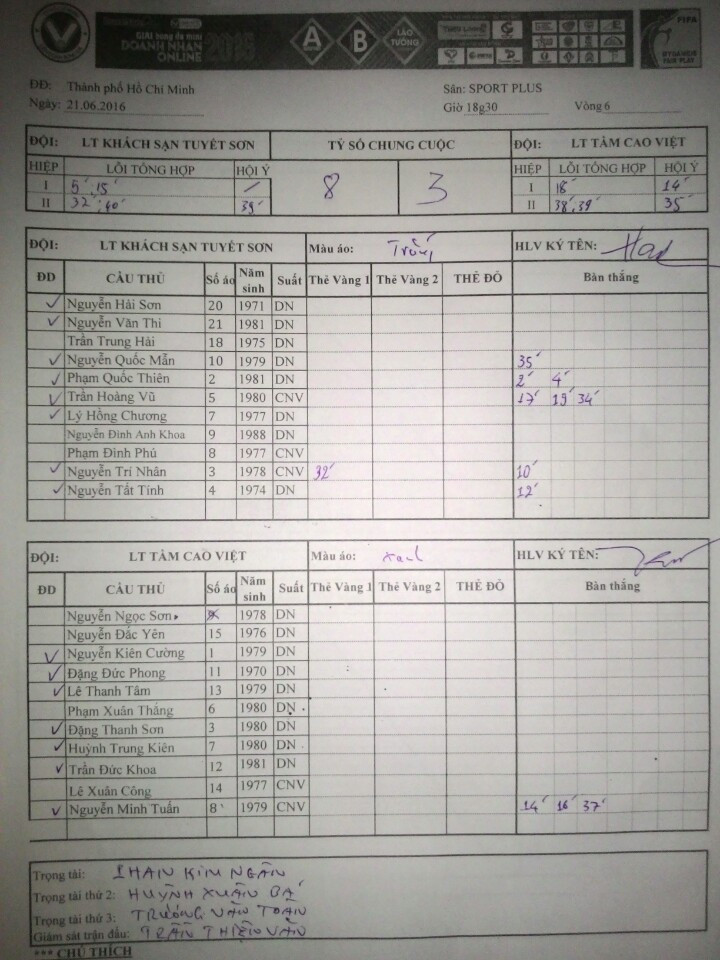 GIẢI bóng đá mini
DOANH NHÂN 2015
ONLINE
A B LÃO TƯỚNG
FIFA
MY GAME IS FAIR PLAY
ĐĐ: Thành phố Hồ Chí Minh Sân: SPORT PLUS
Ngày: 21.06.2016 Giờ 18g30 Vòng 6
ĐỘI: LT KHÁCH SẠN TUYẾT SƠN TỶ SỐ CHUNG CUỘC ĐỘI: LT TẦM CAO VIỆT
HIỆP LỖI TỔNG HỢP HỘI Ý 8 3 HIỆP LỖI TỔNG HỢP HỘI Ý
I 5' 15' / I 18' 14'
II 32' 40' 39' II 38' 39' 35'
ĐỘI: LT KHÁCH SẠN TUYẾT SƠN Màu áo: Trắng HLV KÝ TÊN:
ĐD CẦU THỦ Số áo Năm sinh Suất Thẻ Vàng 1 Thẻ Vàng 2 THẺ ĐỎ Bàn thắng
✓ Nguyễn Hải Sơn 20 1971 DN
✓ Nguyễn Văn Thi 21 1981 DN
Trần Trung Hải 18 1975 DN
✓ Nguyễn Quốc Mẫn 10 1979 DN 35'
✓ Phạm Quốc Thiên 2 1981 DN 2' 4'
✓ Trần Hoàng Vũ 5 1980 CNV 17' 19' 34'
✓ Lý Hồng Chương 7 1977 DN
Nguyễn Đình Anh Khoa 9 1988 DN
Phạm Đình Phú 8 1977 CNV
✓ Nguyễn Trí Nhân 3 1978 CNV 32' 10'
✓ Nguyễn Tất Tính 4 1974 DN 12'
ĐỘI: LT TẦM CAO VIỆT Màu áo: Xanh HLV KÝ TÊN:
ĐD CẦU THỦ Số áo Năm sinh Suất Thẻ Vàng 1 Thẻ Vàng 2 THẺ ĐỎ Bàn thắng
Nguyễn Ngọc Sơn 1978 DN
Nguyễn Đắc Yên 15 1976 DN
✓ Nguyễn Kiên Cường 1 1979 DN
✓ Đặng Đức Phong 11 1970 DN
✓ Lê Thanh Tâm 13 1979 DN
Phạm Xuân Thắng 6 1980 DN
✓ Đặng Thanh Sơn 3 1980 DN
✓ Huỳnh Trung Kiên 7 1980 DN
✓ Trần Đức Khoa 12 1981 DN
Lê Xuân Công 14 1977 CNV
✓ Nguyễn Minh Tuấn 8 1979 CNV 14' 16' 37'
Trọng tài: PHAN KIM NGÂN
Trọng tài thứ 2: HUỲNH XUÂN BÁ
Trọng tài thứ 3: TRƯƠNG VĂN TOÀN
Giám sát trận đấu: TRẦN THIỆN VĂN
*** CHÚ THÍCH